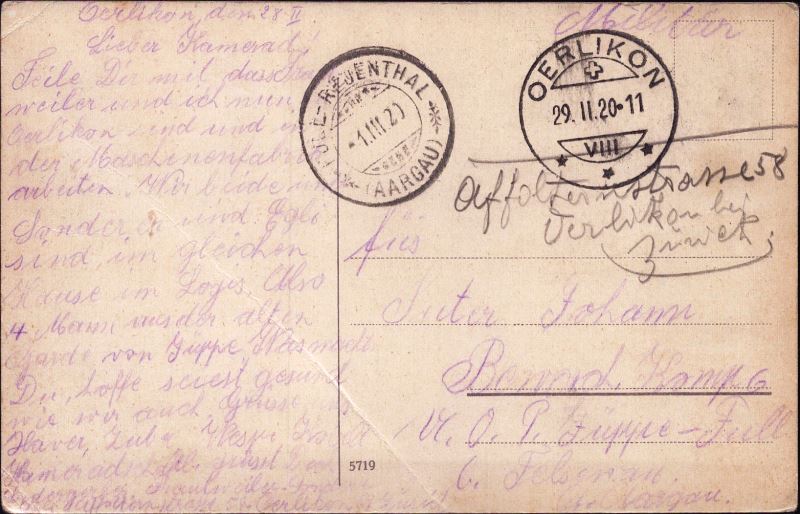 Oerlikon, den 28 II
Lieber Kamerad!
Teile Dir mit dass
weiler und ich nun
Oerlikon sind und in
der Maschinenfabrik
arbeiten. Wir beide
Sonderer und Egli
sind im gleichen
Hause im Logis, Also
4 Mann aus der alten
Garde von Züppe, Was macht
Du, hoffe seiest gesund
wie wir auch, Grüsse
Xaver,
Kameradschftl. grüsst
Oerlikon
Militär
FULL-REUENTHAL
-1.III.20
(AARGAU)
OERLIKON
29. II. 20-11
VIII
Affolternstrasse 58
Oerlikon bei
Zürich.
für
Suter Johann
Bewach. Komp 6
U. O. P. Züppe-Full
b. Felsenau
Aargau.
5719